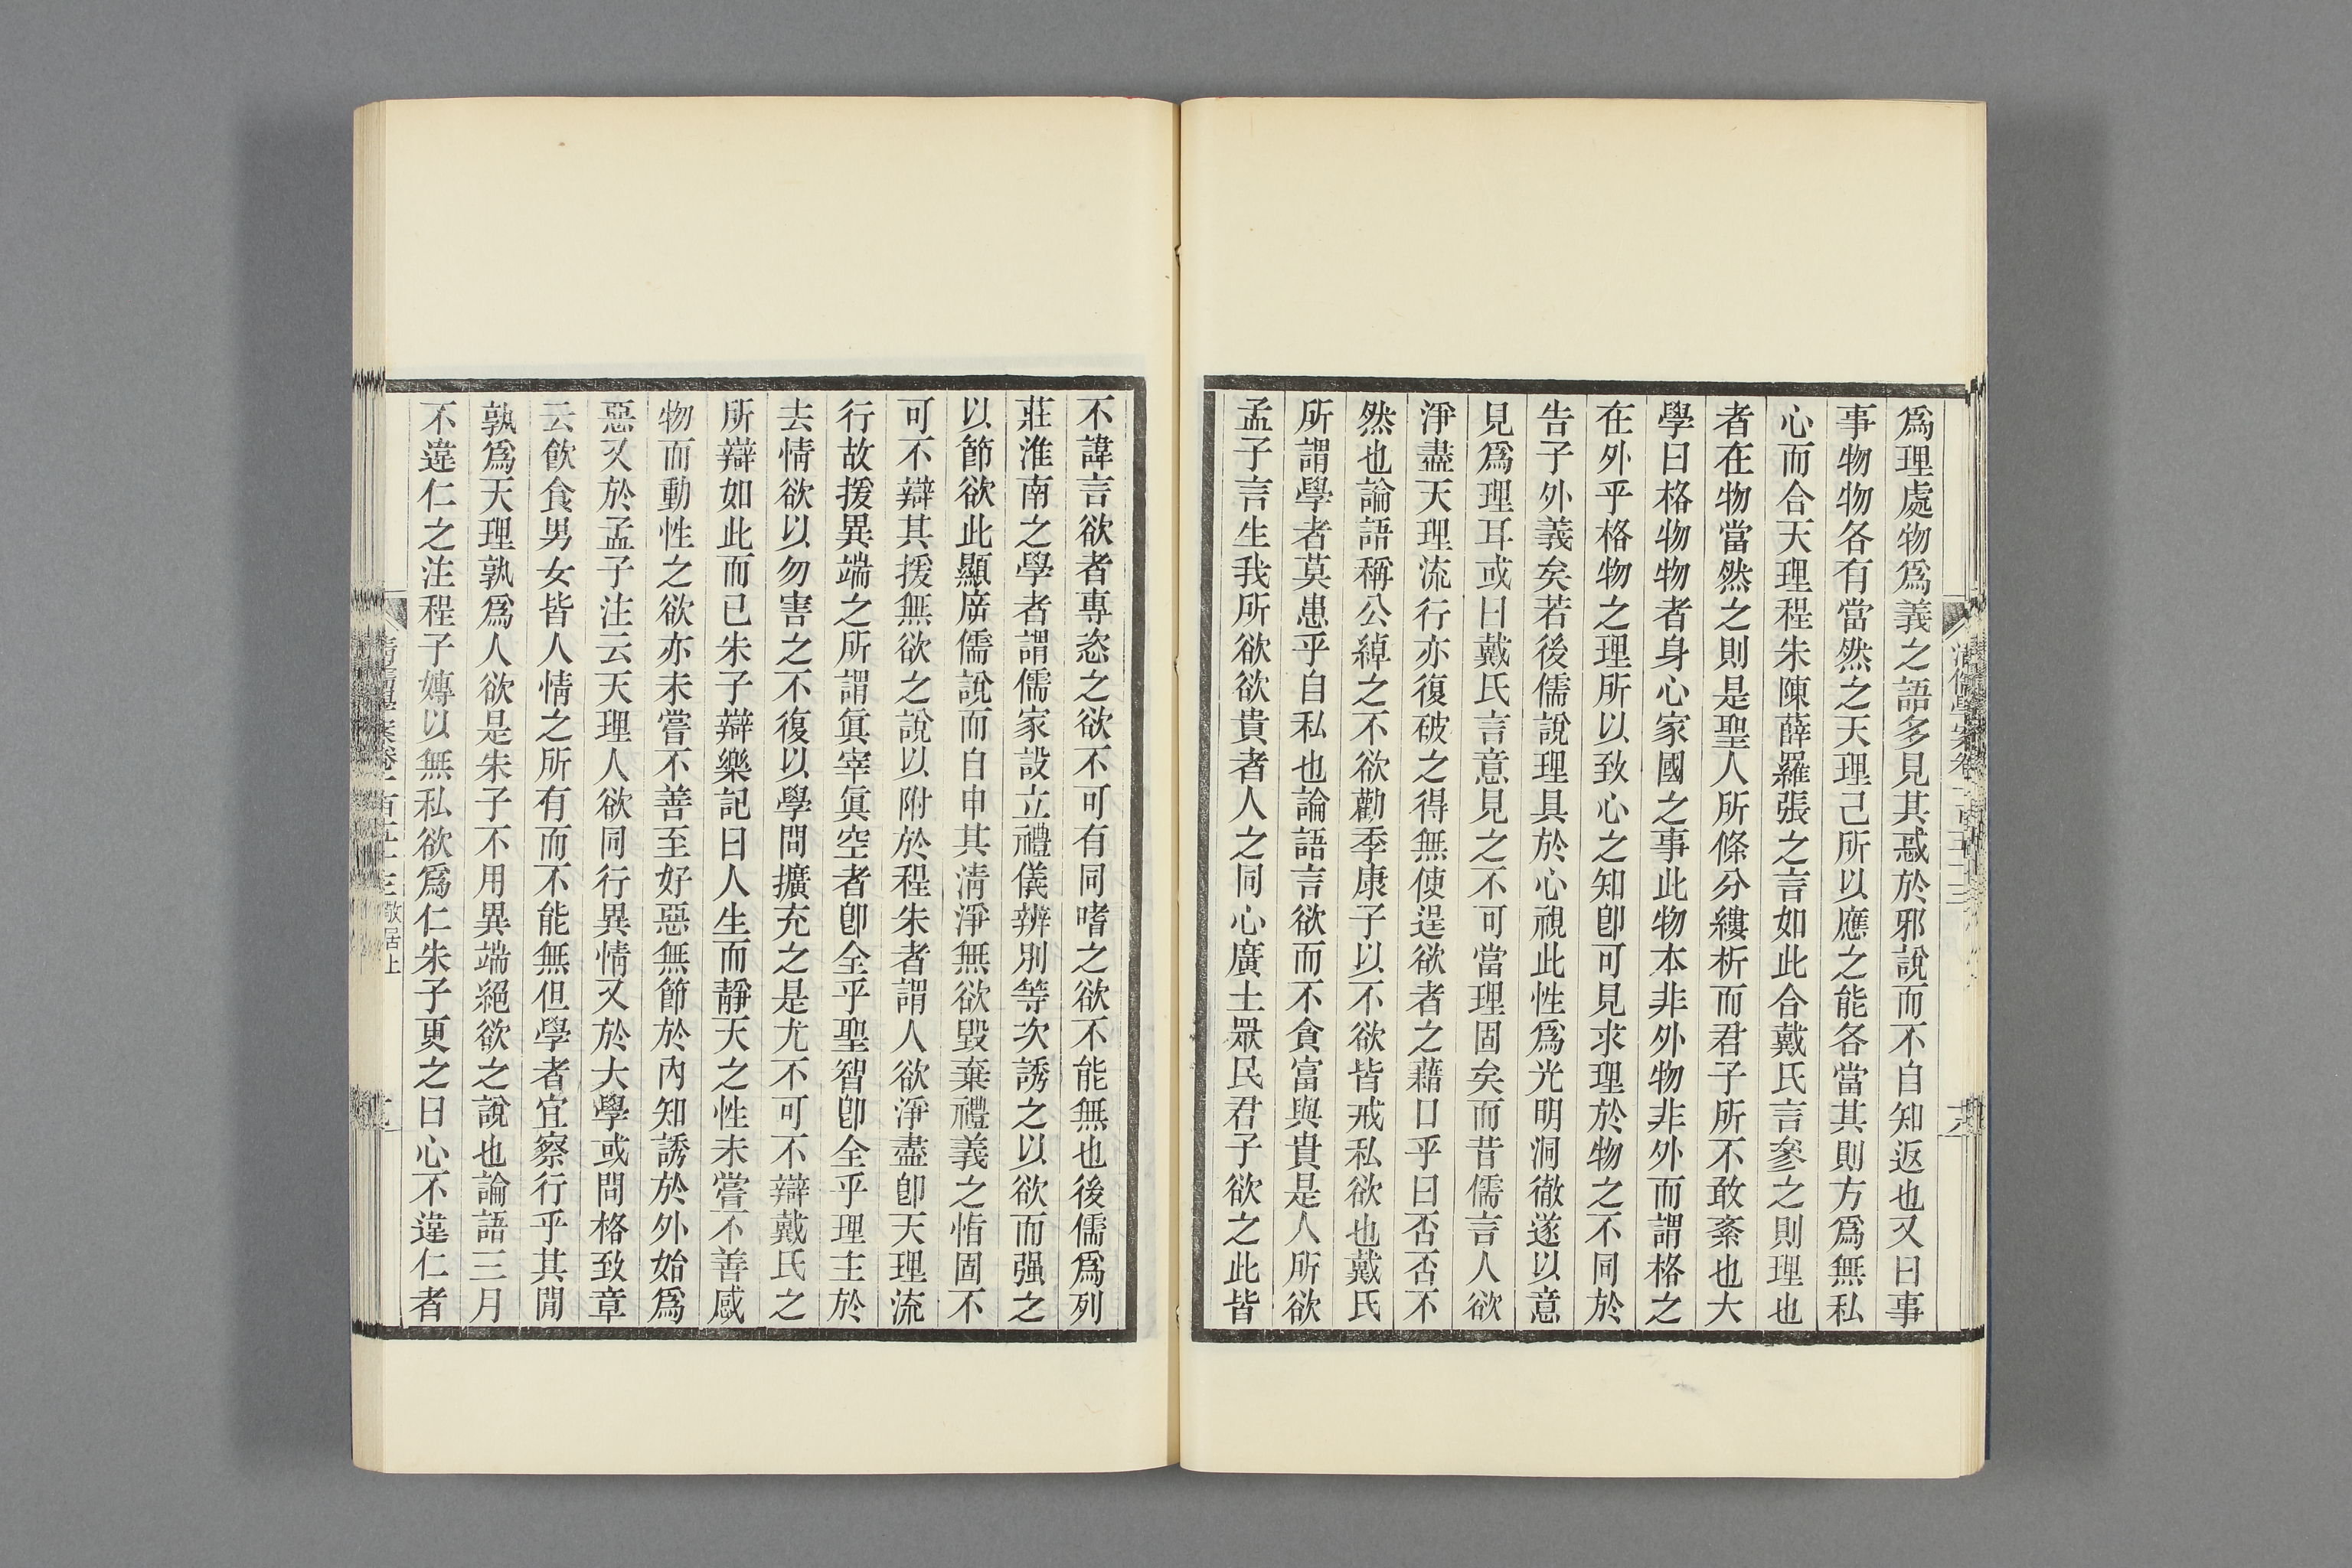 爲理處物爲義之語多見其惑於邪說而不自知返也又曰事
事物物各有當然之天理己所以應之能各當其則方爲無私
心而合天理程朱陳薛羅張之言如此合戴氏言參之則理也
者在物當然之則是聖人所條分縷析而君子所不敢紊也大
學曰格物物者身心家國之事此物本非外物非外而謂格之
在外乎格物之理所以致心之知卽可見求理於物之不同於
告子外義矣若後儒說理具於心視此性爲光明洞徹遂以意
見爲理耳或曰戴氏言意見之不可當理固矣而昔儒言人欲
淨盡天理流行亦復破之得無使逞欲者之藉口乎曰否否不
然也論語稱公綽之不欲勸季康子以不欲皆戒私欲也戴氏
所謂學者莫患乎自私也論語言欲而不貪富與貴是人所欲
孟子言生我所欲欲貴者人之同心廣土眾民君子欲之此皆
不諱言欲者專恣之欲不可有同嗜之欲不能無也後儒爲列
莊淮南之學者謂儒家設立禮儀辨別等次誘之以欲而强之
以節欲此顯㢓儒說而自申其淸淨無欲毀棄禮義之恉固不
可不辯其援無欲之說以附於程朱者謂人欲淨盡卽天理流
行故援異端之所謂眞宰眞空者卽全乎聖智卽全乎理主於
去情欲以勿害之不復以學問擴充之是尤不可不辯戴氏之
所辯如此而已朱子辯樂記曰人生而靜天之性未嘗不善感
物而動性之欲亦未嘗不善至好惡無節於內知誘於外始爲
惡又於孟子注云天理人欲同行異情又於大學或問格致章
云飲食男女皆人情之所有而不能無但學者宜察行乎其閒
孰爲天理孰爲人欲是朱子不用異端絕欲之說也論語三月
不違仁之注程子嫥以無私欲爲仁朱子更之曰心不違仁者
清儒學案卷一百五十三
清儒學案卷一百五十三 儆居上